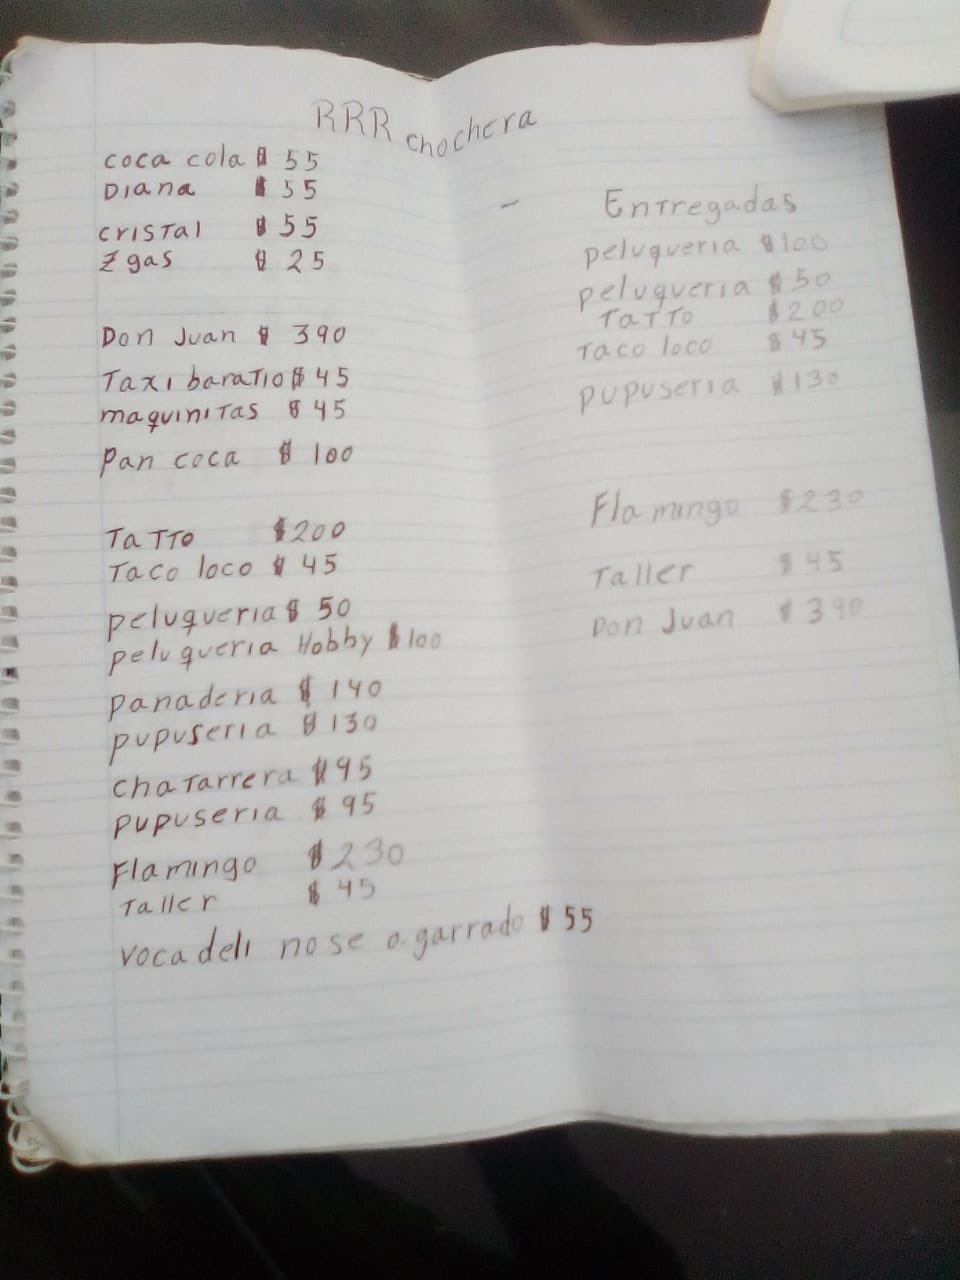 RRR chochera
coca cola $ 55
Diana $ 55
cristal $ 55
Z gas $ 25
Don Juan $ 390
Taxi baratio $ 45
maquinitas $ 45
Pan coca $ 100
Tatto $200
Taco loco $ 45
peluqueria $ 50
peluqueria Hobby $100
panaderia $ 140
pupuseria $ 130
chatarrera $95
pupuseria $ 95
Flamingo $ 230
Taller $ 45
vocadeli no se agarrado $ 55
- Entregadas
peluqueria $100
peluqueria $ 50
Tatto $200
Taco loco $45
pupuseria $130
Flamingo $230
Taller $45
Don Juan $390